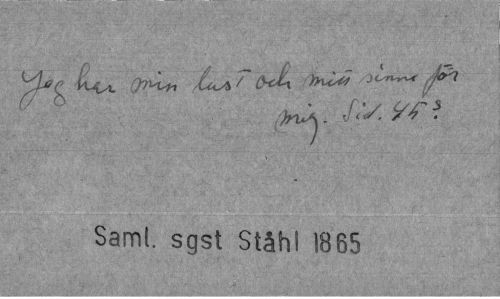 Jag har min lust och mitt sinne för
mig. Sid. 45?
Saml. sgst Ståhl 1865